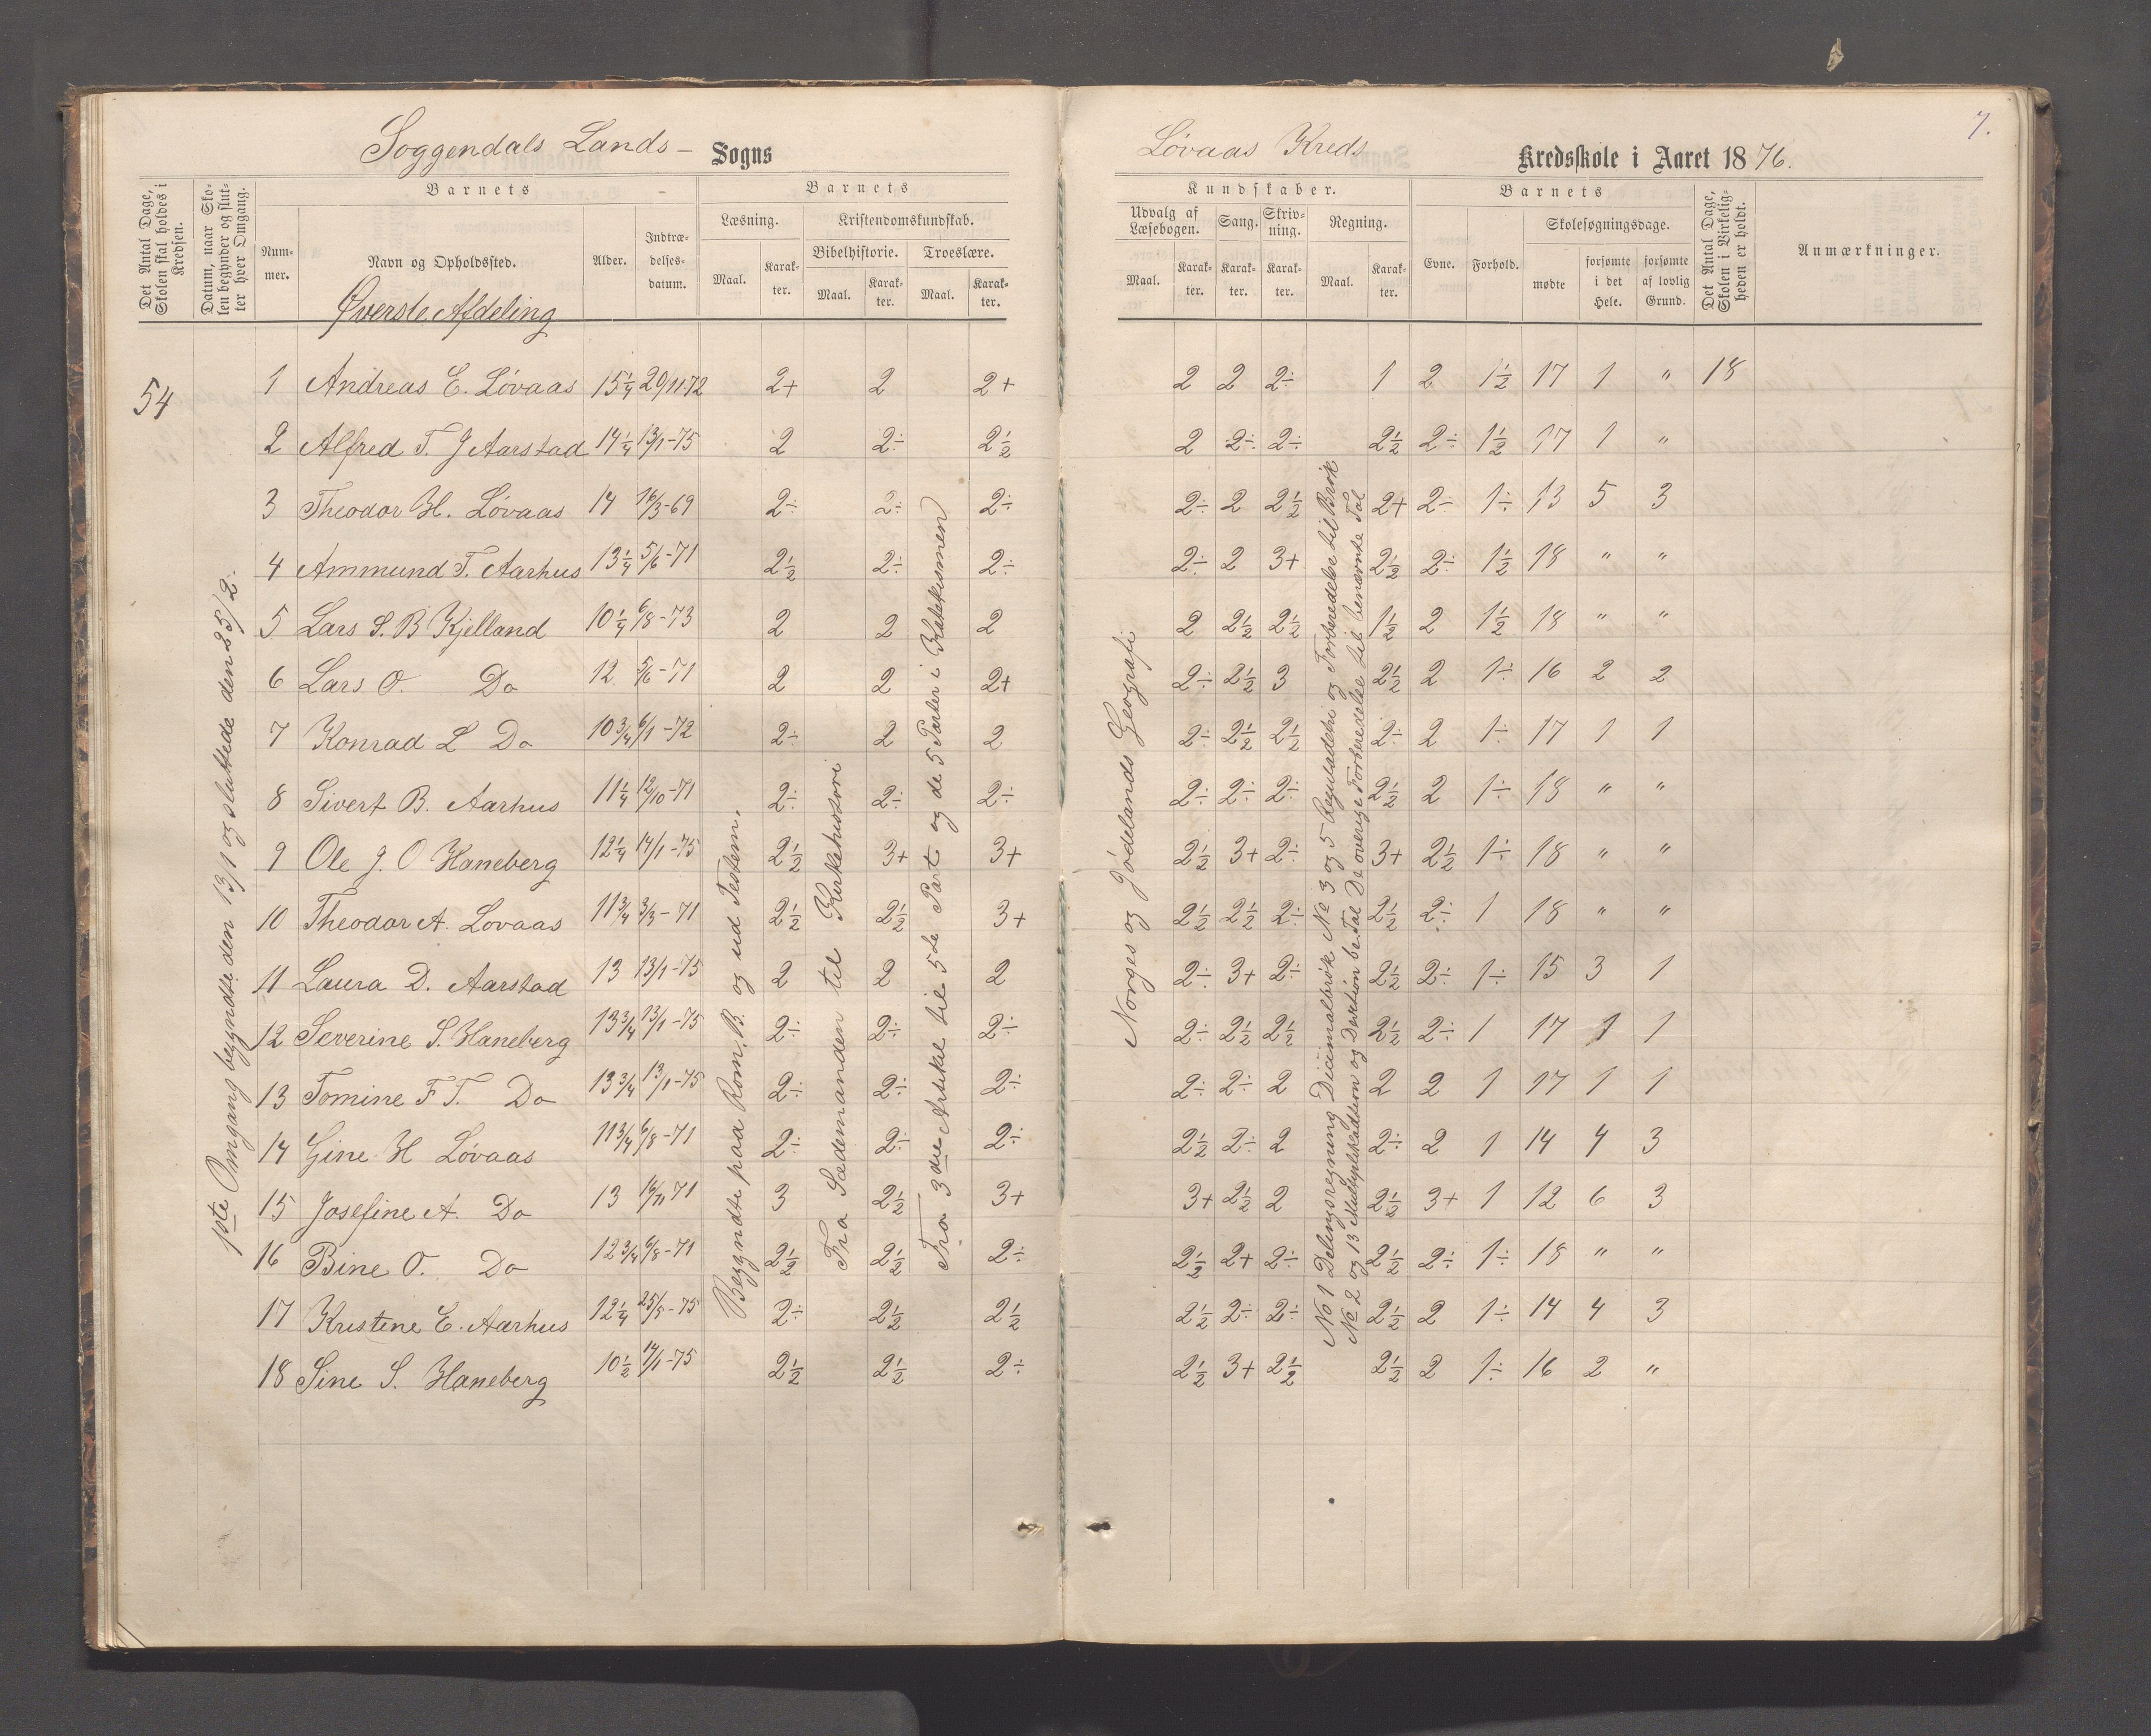 Soggendals Lands- Sogns
Løvaas Kreds Kredsskole i Aaret 1876.
7.
Det Antal Dage, Skolen skal holdes i Kredsen.
Datum, naar Skolen begynder og slutter hver Omgang.
Barnets
Nummer.
Navn og Opholdssted.
Alder.
Indtrædelsesdatum.
Barnets
Læsning.
Maal.
Karakter.
Kristendomskundskab.
Bibelhistorie.
Maal.
Karakter.
Troeslære.
Maal.
Karakter.
Kundskaber.
Udvalg af Læsebogen.
Maal.
Karakter.
Sang.
Karakter.
Skrivning.
Karakter.
Regning.
Maal.
Karakter.
Barnets
Evne.
Forhold.
Skolesøgningsdage.
mødte
forsømte i det Hele.
forsømte af lovlig Grund.
Det Antal Dage, Skolen i Virkeligheden er holdt.
Anmærkninger.
Øverste Afdeling
54
1ste Omgang begyndte den 13/1 og sluttede den 25/2.
1 Andreas E. Løvaas 15 1/4 20/11-72 2+ 2 2+ 2 2 2÷ 1 2 1 1/2 17 1 " 18
2 Alfred T. J Aarstad 14 1/4 13/1-75 2 2÷ 2 1/2 2 2÷ 2÷ 2 1/2 2÷ 1 1/2 17 1 "
3 Theodor H. Løvaas 14 16/3-69 2÷ 2÷ 2÷ 2÷ 2 2 1/2 2+ 2÷ 1÷ 13 5 3
4 Ammund T. Aarhus 13 1/4 5/6-71 2 1/2 2÷ 2÷ 2÷ 2 3+ 2 1/2 2÷ 1 1/2 18 " "
5 Lars S. B Kjelland 10 1/4 6/8-73 2 2 2 2 2 1/2 2 1/2 1 1/2 2 1 1/2 18 " "
6 Lars O. Do 12 5/6-71 2 2 2+ 2÷ 2 1/2 3 2 1/2 2 1÷ 16 2 2
7 Konrad L Do 10 3/4 6/1-72 2÷ 2 2 2÷ 2 1/2 2 1/2 2÷ 2 1÷ 17 1 1
8 Sivert B. Aarhus 11 1/4 12/10-71 2÷ 2÷ 2÷ 2÷ 2÷ 2÷ 2 1/2 2 1÷ 18 " "
9 Ole J. O Haneberg 12 1/4 14/1-75 2 1/2 3+ 3+ 2 1/2 3+ 2÷ 3+ 2 1/2 1÷ 18 " "
10 Theodor A. Lovaas 11 3/4 3/3-71 2 1/2 2 1/2 3+ 2 1/2 2 1/2 2÷ 2 1/2 2÷ 1 18 " "
11 Laura D. Aarstad 13 13/1-75 2 2 2 2÷ 3+ 2÷ 2 1/2 2÷ 1÷ 15 3 1
12 Severine S. Haneberg 13 3/4 13/1-75 2÷ 2÷ 2÷ 2÷ 2 1/2 2 1/2 2 1/2 2÷ 1 17 1 1
13 Tomine F T. Do 13 3/4 13/1-75 2÷ 2÷ 2÷ 2÷ 2÷ 2 2 2 1 17 1 1
14 Gine H Løvaas 11 3/4 6/8-71 2÷ 2÷ 2÷ 2 1/2 2÷ 2 2÷ 2 1 14 4 3
15 Josefine A. Do 13 16/11 71 3 2 1/2 3+ 3+ 2 1/2 2 2 1/2 3+ 1 12 6 3
16 Bine O. Do 12 3/4 6/8-71 2 1/2 2 1/2 2÷ 2 1/2 2+ 2÷ 2 1/2 2÷ 1÷ 18 " "
17 Kristene E. Aarhus 12 1/4 25/8-75 2÷ 2 1/2 2 1/2 2 1/2 2÷ 2÷ 2 1/2 2 1÷ 14 4 3
18 Sine S. Haneberg 10 1/2 14/1-75 2 1/2 2 1/2 2÷ 2 1/2 3+ 2 1/2 2 1/2 2 1÷ 16 2 "
Begyndte paa Rom. B. og ud Testem.
Fra Sædemanden til Kirkehistorie
Fra 3die Artikel til 5te Part og de 5 Parter i Katekismen
Norges og Jødelands Geografi
No 1 Delingsregning Decimalbrøk No 3 og 5 Reguladetri og Forberedelse til Brøk
No 2 og 13 Multiplikation og Divition be. Tal De øvrige Forberedelse til benævnte Tal